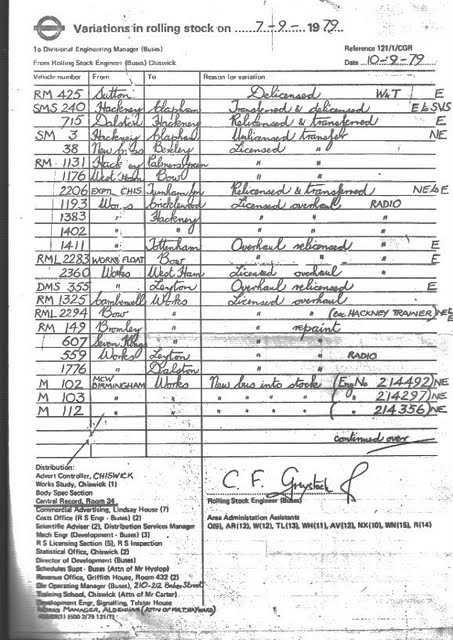 Variations in rolling stock on 7-9- 1979
To Divisional Engineering Manager (Buses)
Reference 121/1/CGR
From Rolling Stock Engineer (Buses) Chiswick
Date 10-9-79
Vehicle number From To Reason for variation
RM 425 Sutton Delicensed W&T E
SMS 240 Hackney Clapham Transferred & delicensed E to SVS
715 Dalston Hackney Relicensed & transferred E
SM 3 Hackney Clapham Unlicensed transfer NE
38 New Cross Bexley Licensed "
RM 1131 Hackney Palmers Green " "
1176 West Ham Bow " "
2206 EXPM. CHIS. Turnham Gn Relicensed & transferred NE to E
1193 Works Cricklewood Licensed overhaul RADIO
1383 " Hackney " "
1402 " " " "
1411 " Tottenham Overhaul relicensed E
RML 2283 WORKS FLOAT Bow " " E
2360 Works West Ham Licensed overhaul
DMS 355 " Leyton Overhaul relicensed E
RM 1325 Camberwell Works Licensed overhaul
RML 2294 Bow " " " (ex HACKNEY TRAINER) NE
RM 149 Bromley " " repaint
607 Seven Kings " " "
559 Works Leyton " " RADIO
1776 " Dalston " "
M 102 MCW BIRMINGHAM Works New bus into stock (Eng No 214492) NE
M 103 " " " " " " ( " 214297) NE
M 112 " " " " " " ( " 214356) NE
continued over
Distribution:
Advert Controller, CHISWICK
Works Study, Chiswick (1)
Body Spec Section
Central Record, Room 34
Commercial Advertising, Lindsay House (7)
Costs Office (R S Engr - Buses) (2)
Scientific Adviser (2), Distribution Services Manager
Mech Engr (Development - Buses) (3)
R S Licensing Section (5), R S Inspection
Statistical Office, Chiswick (2)
Director of Development (Buses)
Schedules Supt - Buses (Attn of Mr Hyslop)
Revenue Office, Griffith House, Room 432 (2)
Site Operating Manager (Buses), 210-212 Baker Street
Training School, Chiswick (Attn of Mr Carter)
Development Engr, Signalling, Telstar House
WORKS MANAGER, ALDENHAM (ATTN OF MR T. HAYWARD)
C. F. Grystock
Rolling Stock Engineer (Buses)
Area Administration Assistants
Q(9), AR(12), W(12), TL(13), WH(11), AV(12), NX(10), WN(15), R(14)